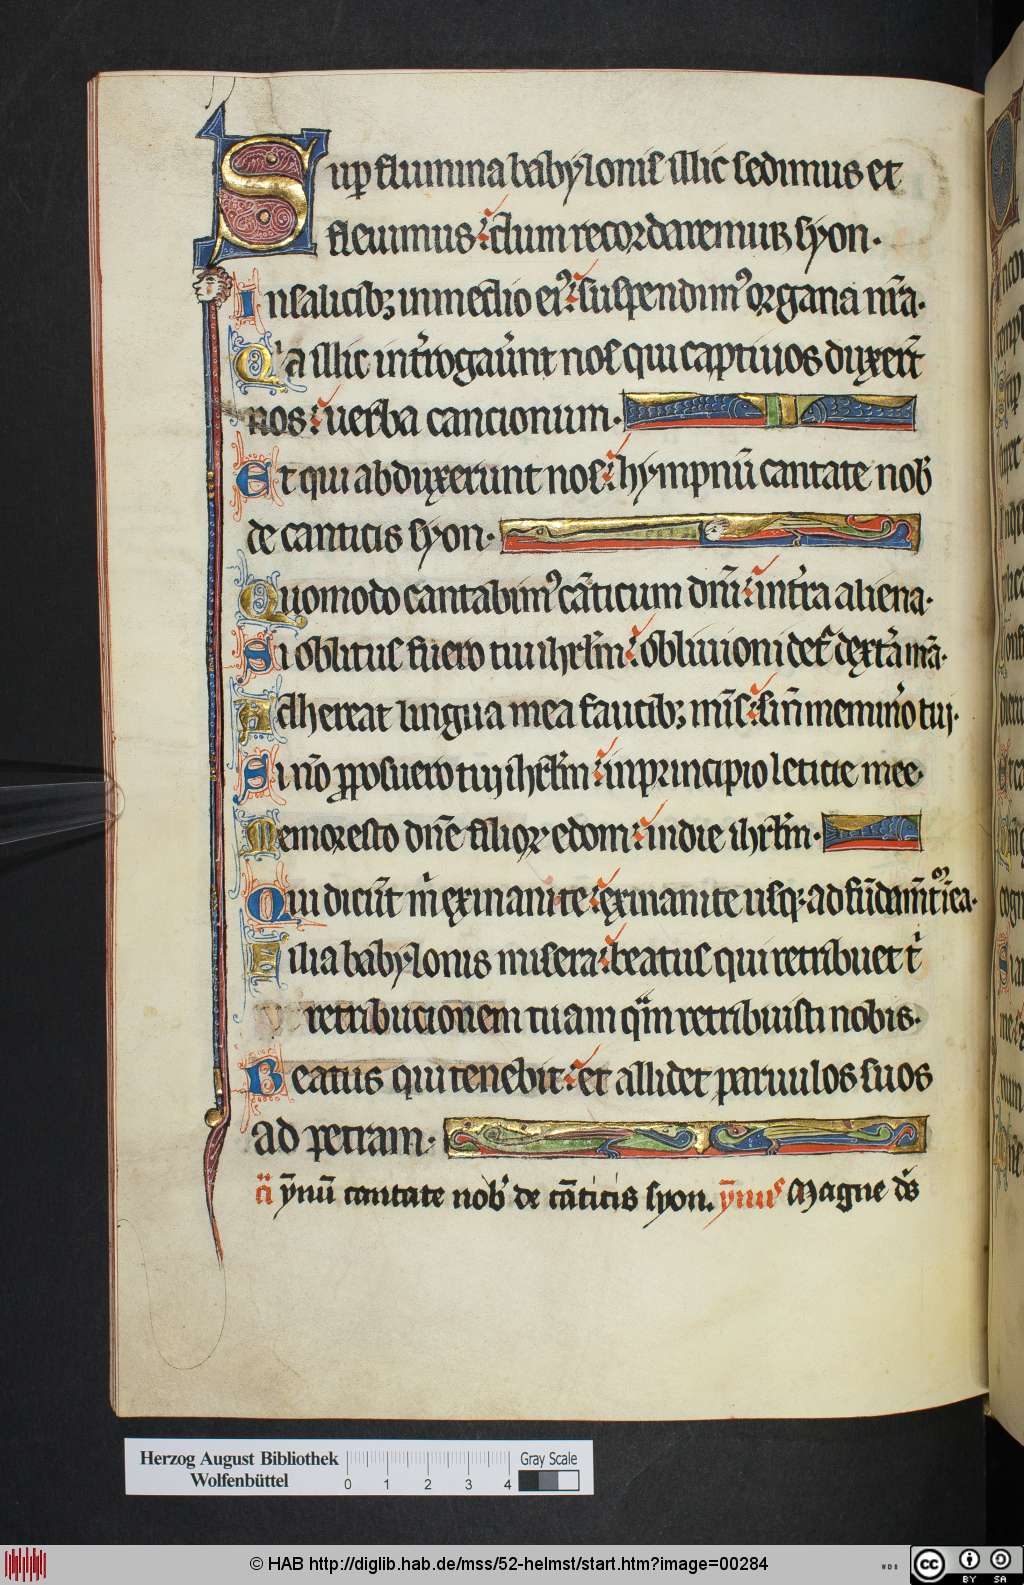 Sup flumina babylonis illic sedimus et
fleuimus: dum recordaremur syon.
In salicib; in medio ei9: suspendim9 organa nr̄a.
Qͥa illic int̄rogaūnt nos qui captiuos duxer̄t
nos: uerba cancionum.
Et qui abduxerunt nos: hympnū cantate nob̄
de canticis syon.
Quomodo cantabim9 cāticum dn̄i: in t̄ra aliena.
Si oblitus fuero tui ihrl̄m: obliuioni det᷑ dext̄a mā.
Adhereat lingua mea faucib; mīs: si n̄ memin̄o tui.
Si nō p̄posuero tui ihrl̄m: in principio leticie mee.
Memor esto dn̄e filioꝝ edom: in die ihrl̄m.
Qui dicūt m̄ exinanite: exinanite usq; ad fūdam̄tū ī ea.
Filia babylonis misera: beatus qui retribuet tͥ
retribucionem tuam qm̄ retribuisti nobis.
Beatus qui tenebit: et allidet paruulos suos
ad petram.
a᷑ ȳnū cantate nob̄ de cāticis syon. ȳnus Magne ds̄
Herzog August Bibliothek
Wolfenbüttel
0 1 2 3 4
Gray Scale
© HAB http://diglib.hab.de/mss/52-helmst/start.htm?image=00284
WDB
cc
BY SA